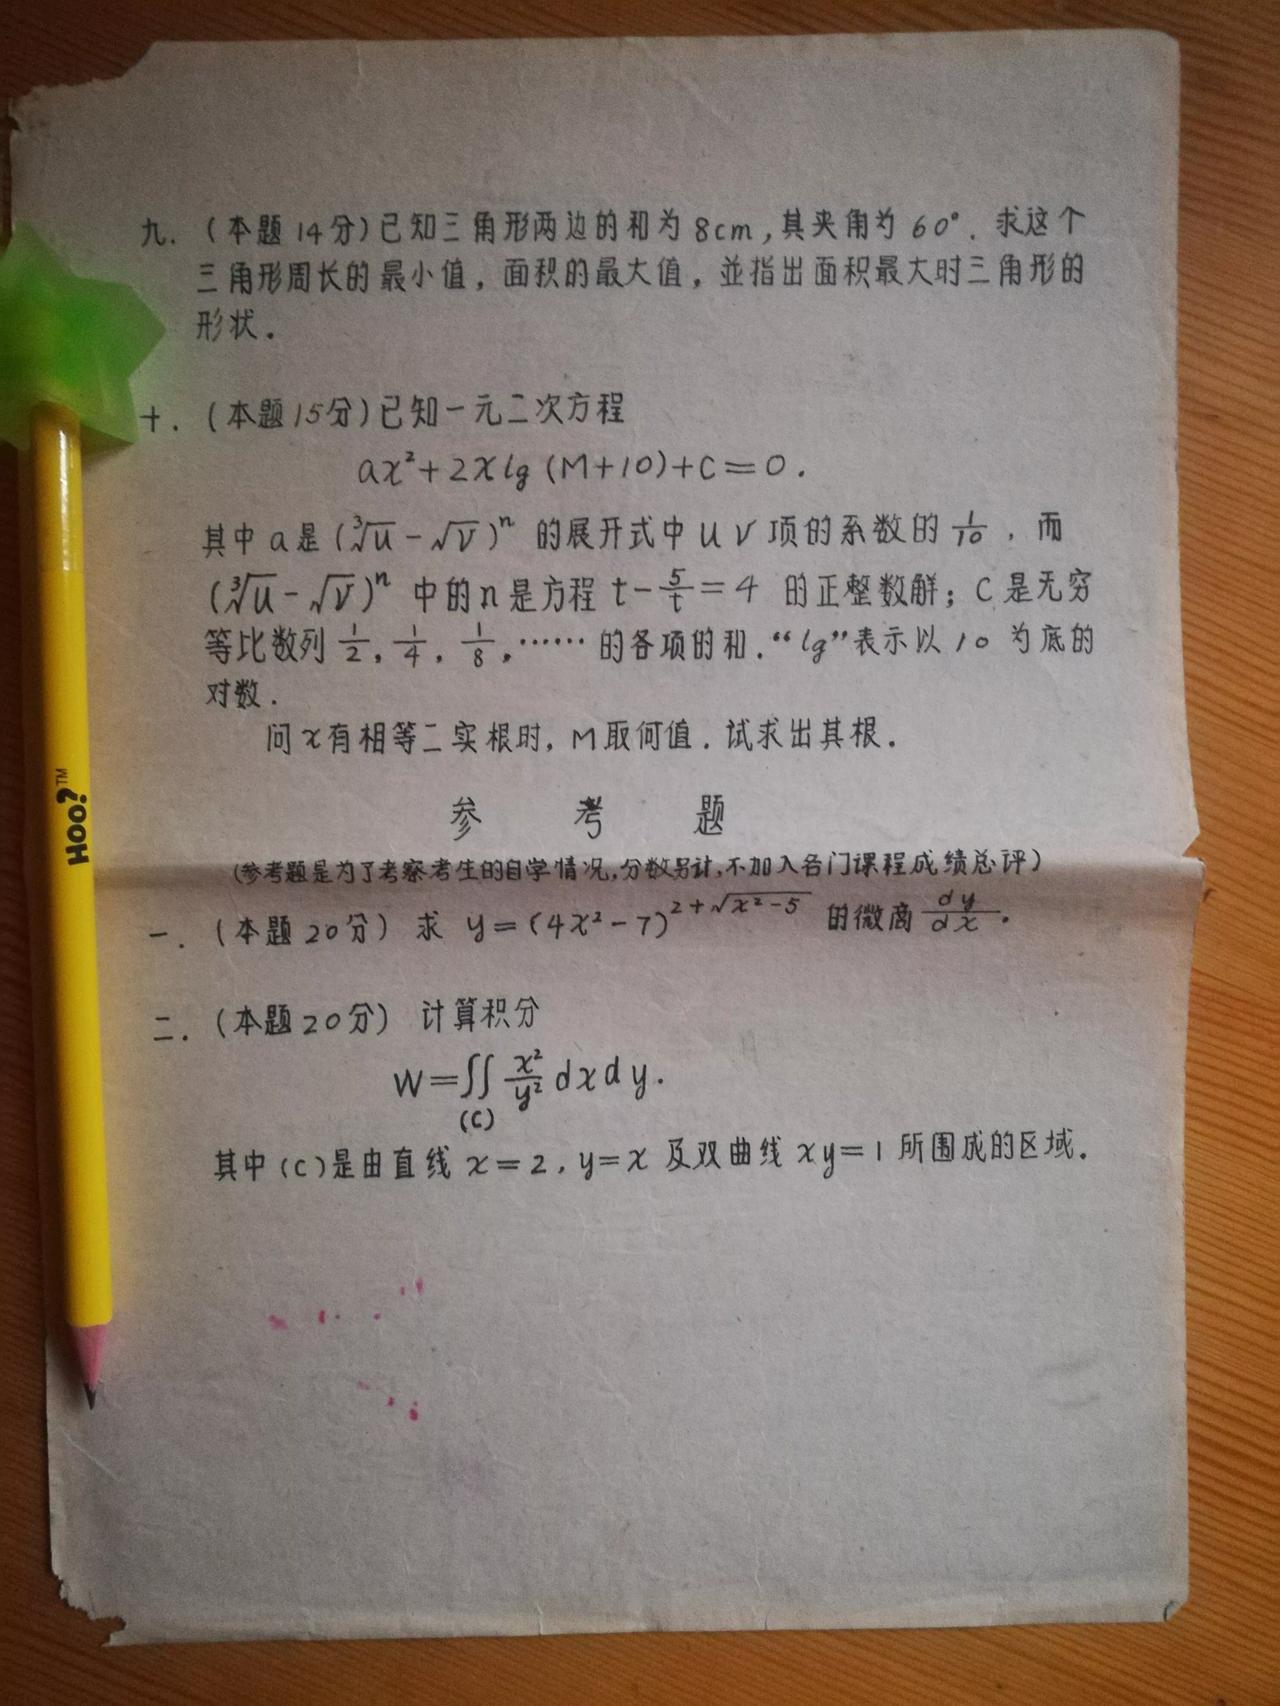 九.(本题14分)已知三角形两边的和为8cm,其夹角为60°.求这个
三角形周长的最小值,面积的最大值,並指出面积最大时三角形的
形状.
十.(本题15分)已知一元二次方程
ax²+2xlg(M+10)+C=0.
其中a是(∛u-√v)ⁿ的展开式中uv项的系数的1/10,而
(∛u-√v)ⁿ中的n是方程t-5/t=4的正整数解;C是无穷
等比数列1/2,1/4,1/8,……的各项的和.“lg”表示以10为底的
对数.
问x有相等二实根时,M取何值.试求出其根.
参考题
(参考题是为了考察考生的自学情况,分数另计,不加入各门课程成绩总评)
一.(本题20分)求 y=(4x²-7)^(2+√(x²-5)) 的微商dy/dx.
二.(本题20分) 计算积分
W=∬(C) x²/y² dxdy.
其中(C)是由直线x=2,y=x及双曲线xy=1所围成的区域.
Hoo?™